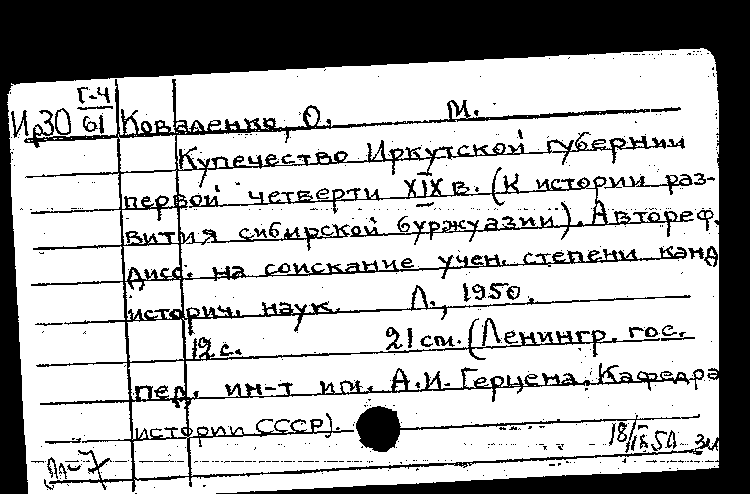 Г-4
Ир30 61 Коваленко, О. М.
Купечество Иркутской губернии
первой четверти XIX в. (К истории раз-
вития сибирской буржуазии). Автореф.
дисс. на соискание учен. степени канд
историч. наук. Л., 1950.
12 с. 21 см. (Ленингр. гос.
пед. ин-т им. А.И. Герцена. Кафедра
истории СССР).
18/IX 50